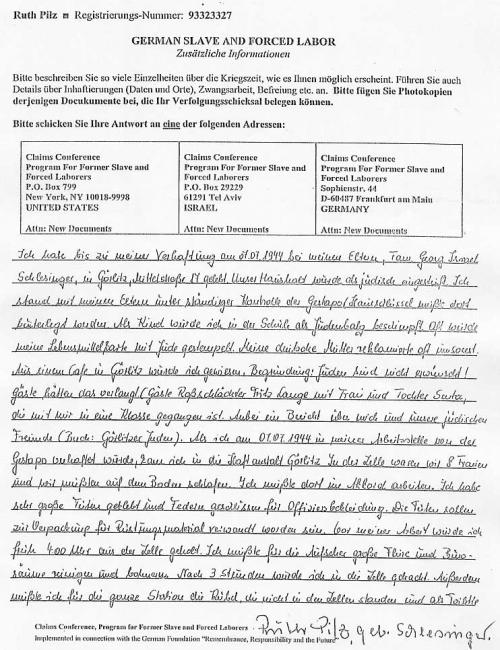 Ruth Pilz ■ Registrierungs-Nummer: 93323327
GERMAN SLAVE AND FORCED LABOR
Zusätzliche Informationen
Bitte beschreiben Sie so viele Einzelheiten über die Kriegszeit, wie es Ihnen möglich erscheint. Führen Sie auch
Details über Inhaftierungen (Daten und Orte), Zwangsarbeit, Befreiung etc. an. Bitte fügen Sie Photokopien
derjenigen Docukumente bei, die Ihr Verfolgungsschicksal belegen können.
Bitte schicken Sie Ihre Antwort an eine der folgenden Adressen:
Claims Conference
Program For Former Slave and
Forced Laborers
P.O. Box 799
New York, NY 10018-9998
UNITED STATES
Attn: New Documents
Claims Conference
Program For Former Slave and
Forced Laborers
P.O. Box 29229
61291 Tel Aviv
ISRAEL
Attn: New Documents
Claims Conference
Program For Former Slave and
Forced Laborers
Sophienstr. 44
D-60487 Frankfurt am Main
GERMANY
Attn: New Documents
Ich habe bis zu meiner Verhaftung am 01.07.1944 bei meinen Eltern, Fam. Georg Israel
Schlesinger, in Görlitz, Mittelstraße gelebt. Unser Haushalt wurde als jüdisch eingestuft. Ich
stand mit meinen Eltern unter ständiger Kontrolle der Gestapo (Hausschlüssel mußte dort
hinterlegt werden. Als Kind wurde ich in der Schule als Judenbalg beschimpft. Oft wurde
meine Lebensmittelkarte mit Jude gestempelt. Meine deutsche Mutter reklamierte oft umsonst.
Aus einem Cafe in Görlitz wurde ich gewiesen. Begründung: Juden sind nicht erwünscht!
Gäste hätten das verlangt (Gäste Roßschlächter Fritz Lange mit Frau und Tochter
die mit mir in eine Klasse gegangen ist. Anbei ein Bericht über mich und unsere jüdischen
Freunde (Buch: Görlitzer Juden). Als ich am 01.07.1944 in meiner Arbeitsstelle von der
Gestapo verhaftet wurde, kam ich in die Haftanstalt Görlitz. In der Zelle waren wir 8 Frauen
und wir mußten auf dem Boden schlafen. Ich mußte dort im Akkord arbeiten. Ich habe
sehr große Tüten geklebt und Federn gerissen für Offiziersbekleidung. Die Tüten sollen
zur Verpackung für Rüstungsmaterial verwandt worden sein. Vor meiner Arbeit wurde ich
früh 4.00 Uhr aus der Zelle geholt. Ich mußte für die Aufseher große Flure und Büro-
räume reinigen und bohnern. Nach 3 Stunden wurde ich in die Zelle gebracht. Außerdem
mußte ich für die ganze Station die Kübel, die nicht in den Zellen standen und als Toilette
Claims Conference, Program for Former Slave and Forced Laborers
Implemented in connection with the German Foundation "Remembrance, Responsibility and the Future"
Ruth Pilz, geb. Schlesinger.